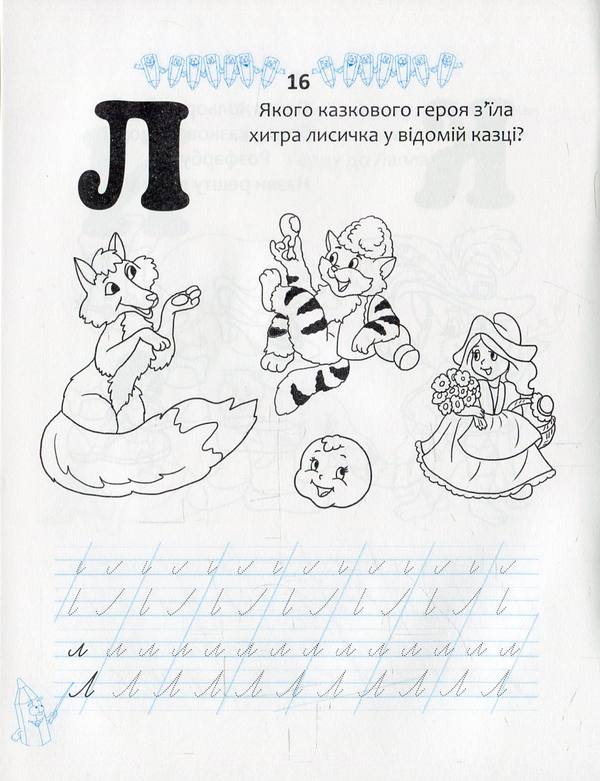 16
Л
Якого казкового героя з'їла
хитра лисичка у відомій казці?
л л л л л л л л л л л л л
Л Л Л Л Л Л Л Л Л Л Л Л